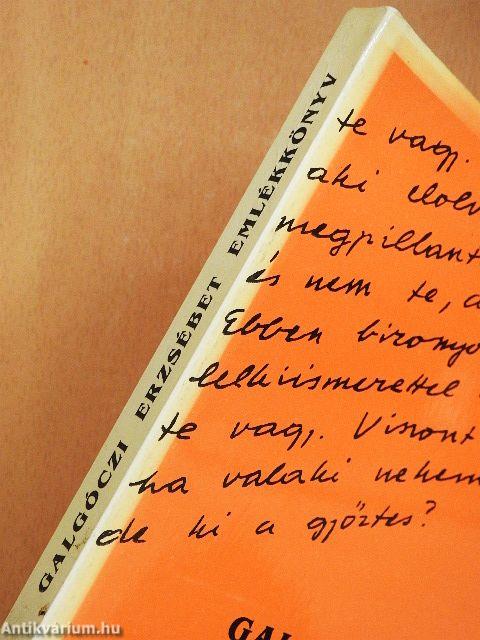 GALGÓCZI ERZSÉBET EMLÉKKÖNYV
te vagy.
aki elolv
megpillant
és nem te, a
Ebben bizonyo
lelkiismerettel
te vagy. Viszont
ha valaki nekem
de ki a győztes?
GAL
Antikvárium.hu